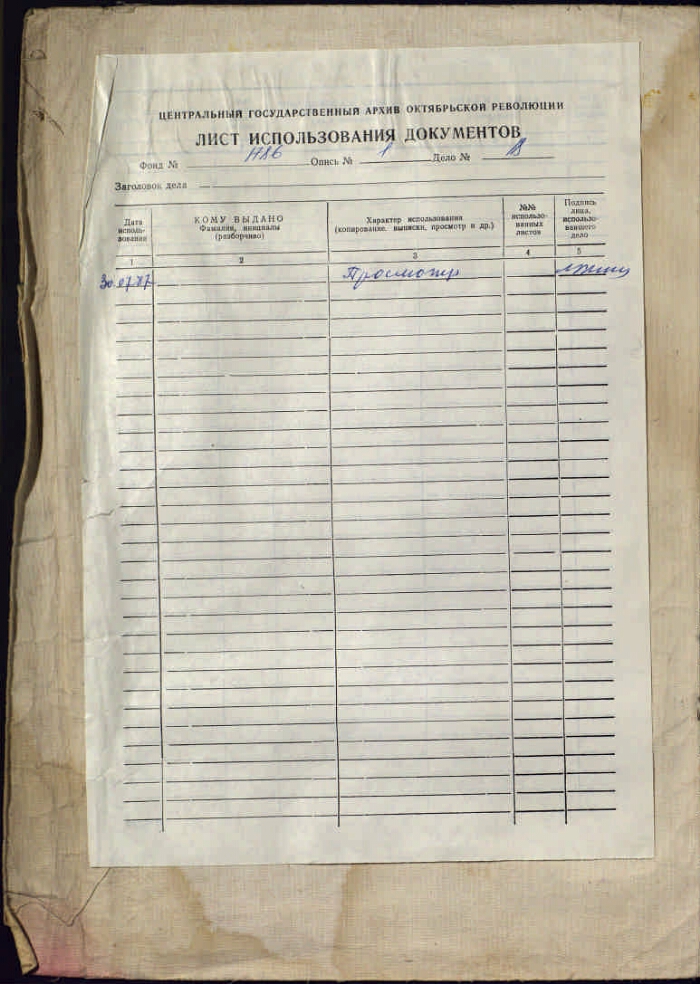 ЦЕНТРАЛЬНЫЙ ГОСУДАРСТВЕННЫЙ АРХИВ ОКТЯБРЬСКОЙ РЕВОЛЮЦИИ
ЛИСТ ИСПОЛЬЗОВАНИЯ ДОКУМЕНТОВ
Фонд № 1786 Опись № 1 Дело №
Заголовок дела
Дата исполь-зования
КОМУ ВЫДАНО
Фамилия, инициалы
(разборчиво)
Характер использования
(копирование, выписки, просмотр и др.)
№№
использо-
ванных
листов
Подпись
лица,
использо-
вавшего
дело
1 2 3 4 5
30.07.87 Просмотр